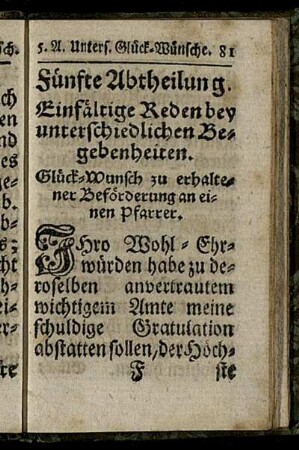 5. A. Unters. Glück-Wünsche. 81
Fünfte Abtheilung.
Einfältige Reden bey
unterschiedlichen Be-
gebenheiten.
Glück-Wunsch zu erhalte-
ner Beförderung an ei-
nen Pfarrer.
IHro Wohl-Ehr-
würden habe zu de-
roselben anvertrautem
wichtigem Amte meine
schuldige Gratulation
abstatten sollen, der Höch-
F ste